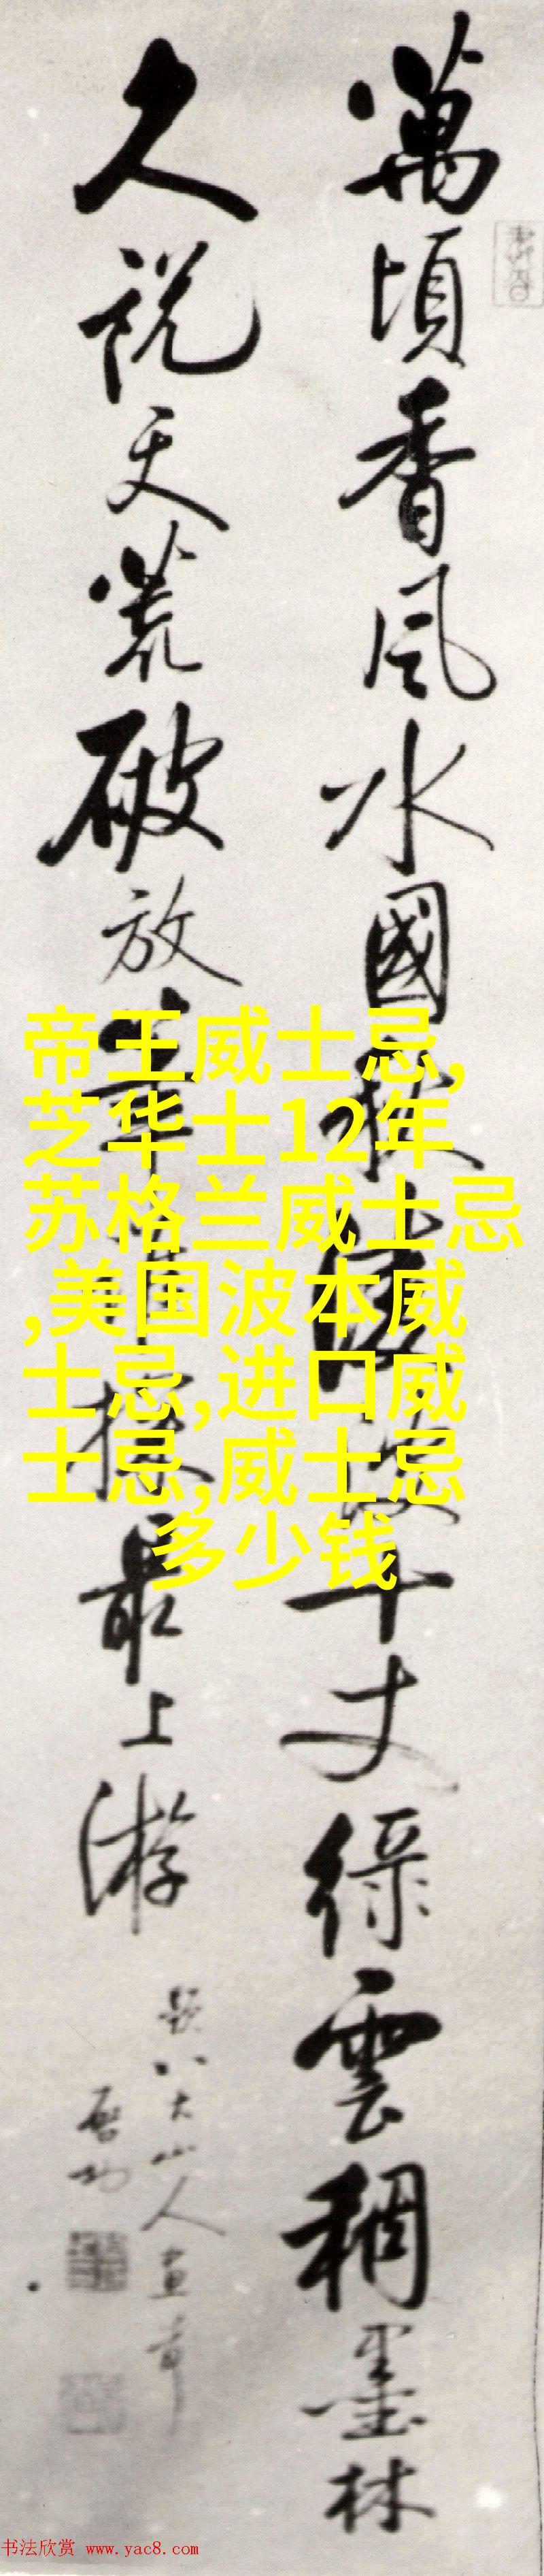 萬頃香風水國秋千丈綠雲稠墨林
久說天荒破放筆探最上游
題八大山人畫
啓功
帝王威士忌,
芝华士12年
苏格兰威士忌
,美国波本威
士忌,进口威
士忌,威士忌
多少钱
书法欣赏 www.yac8.com